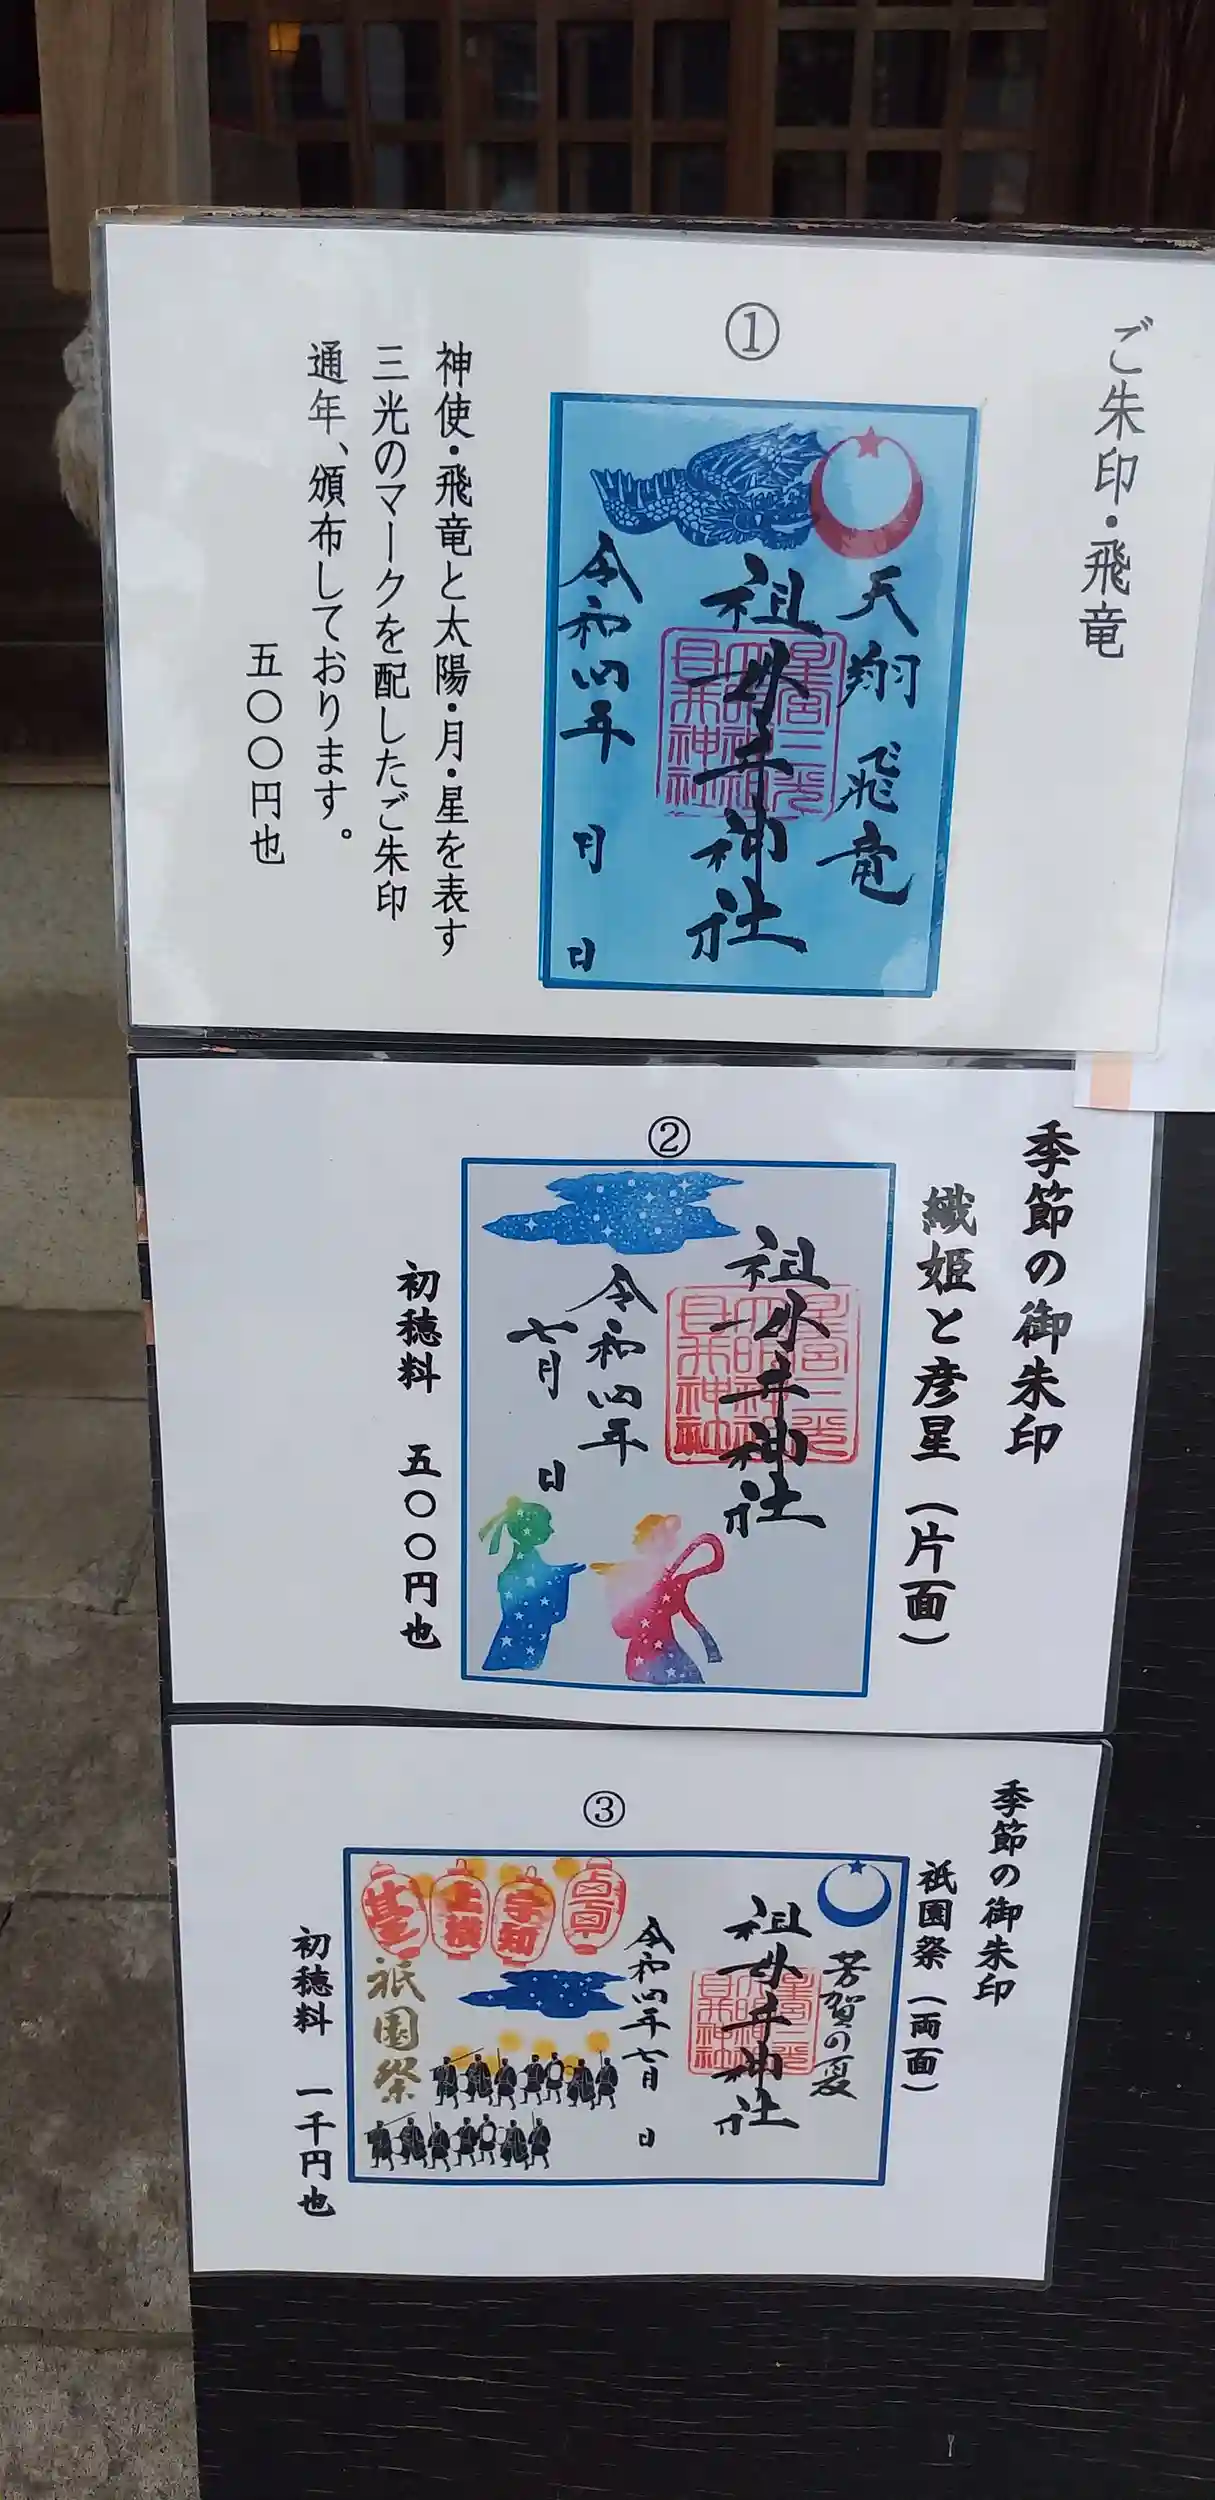 ご朱印・飛竜
①
天翔飛竜
祖母井神社
令和四年 月 日
神使・飛竜と太陽・月・星を表す
三光のマークを配したご朱印
通年、頒布しております。
五〇〇円也
季節の御朱印
織姫と彦星(片面)
②
祖母井神社
令和四年
七月 日
初穂料 五〇〇円也
季節の御朱印
祇園祭(両面)
③
芳賀の夏
祖母井神社
令和四年七月 日
祇園祭
初穂料 一千円也